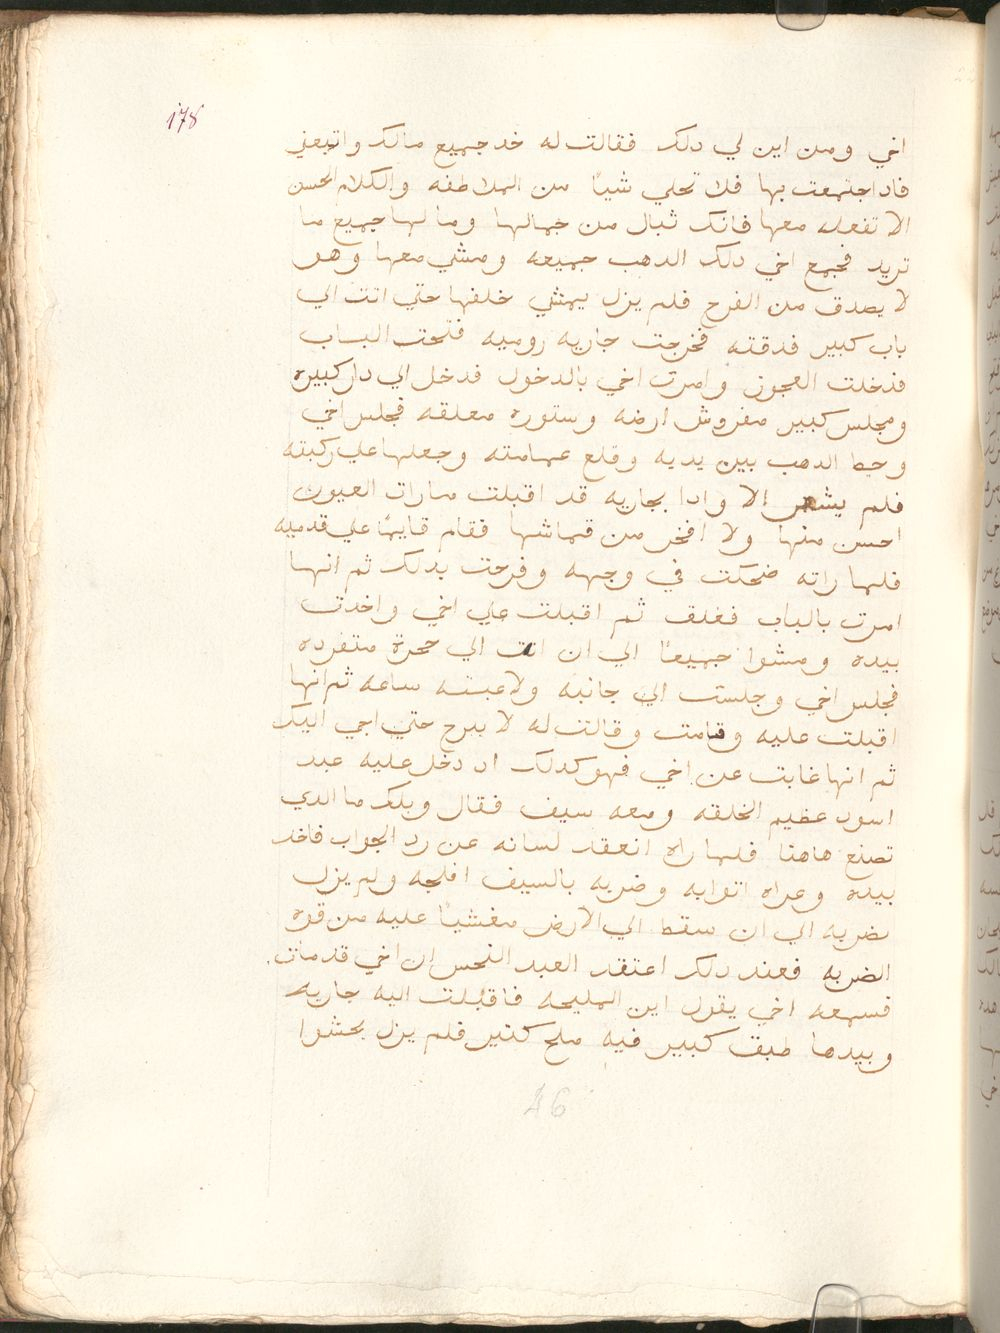 178
اخي ومن اين لي دلك فقالت له خد جميع مالك واتبعني
فادا اجتمعت بها فلا تخلي شيًا من الملاطفه والكلام الحسن
الا تفعله معها فانك تبال من جمالها ومالها جميع ما
تريد فجمع اخي دلك الدهب جميعه ومشي معها وهو
لا يصدق من الفرح فلم يزل يمشي خلفها حتي اتت الي
باب كبير فدقته فخرجت جاريه روميه فتحت الباب
فدخلت العجوز وامرت اخي بالدخول فدخل الي دار كبيره
ومجلس كبير مفروش ارضه وستوره معلقه فجلس اخي
وحط الدهب بين يديه وقلع عمامته وجعلها علي ركبته
فلم يشعر الا وادا بجاريه قد اقبلت مارات العيون
احسن منها ولا افخر من قماشها فقام قايمًا علي قدميه
فلما راته ضحكت في وجهه وفرحت بدلك ثم انها
امرت بالباب فغلق ثم اقبلت علي اخي واخدت
بيده ومشوا جميعًا الي ان اتت الي حجرة متفرده
فجلس اخي وجلست الي جانبه ولاعبته ساعه ثم انها
اقبلت عليه وقامت وقالت له لا تبرح حتي اجي اليك
ثم انها غابت عن اخي فهو كدلك اد دخل عليه عبد
اسود عظيم الخلقه ومعه سيف فقال ويلك ما الدي
تصنع هاهنا فلما راه انعقد لسانه عن رد الجواب فاخد
بيده وعراه اتوابه وضربه بالسيف افلجه ولم يزل
يضربه الي ان سقط الي الارض مغشيًا عليه من قوه
الضربه فعند دلك اعتقد العبد النحس ان اخي قد مات
فسمعه اخي يقول اين المليحه فاقبلت اليه جاريه
وبيدها طبق كبير فيه ملح كتير فلم يزل يحشوا
46